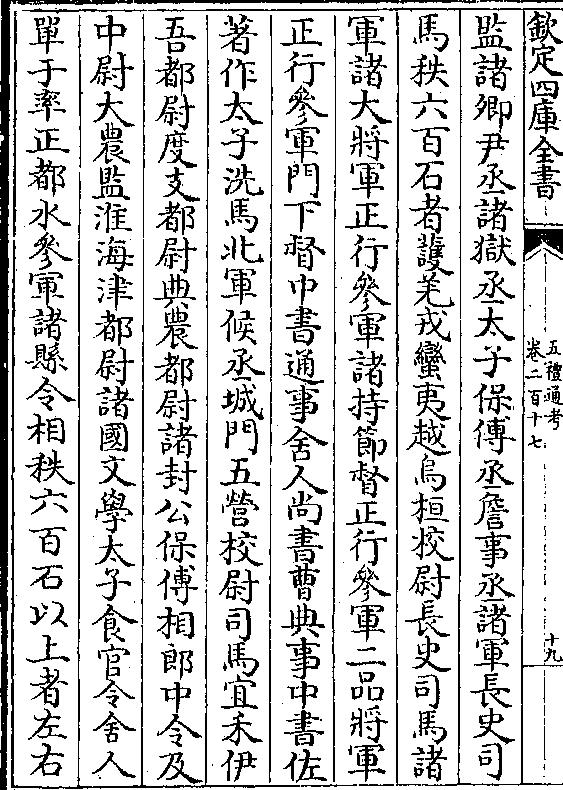 欽定四庫全書
五禮通考
卷二百十七
十九
監諸卿尹丞諸獄丞太子保傅丞詹事丞諸軍長史司
馬秩六百石者護羌戎蠻夷越烏桓校尉長史司馬諸
軍諸大將軍正行參軍諸持節督正行參軍二品將軍
正行參軍門下督中書通事舍人尚書曹典事中書佐
著作太子洗馬北軍候丞城門五營校尉司馬宜禾伊
吾都尉度支都尉典農都尉諸封公保傅相郎中令及
中尉大農監淮海津都尉諸國文學太子食官令舍人
單于率正都水參軍諸縣令相秩六百石以上者左右